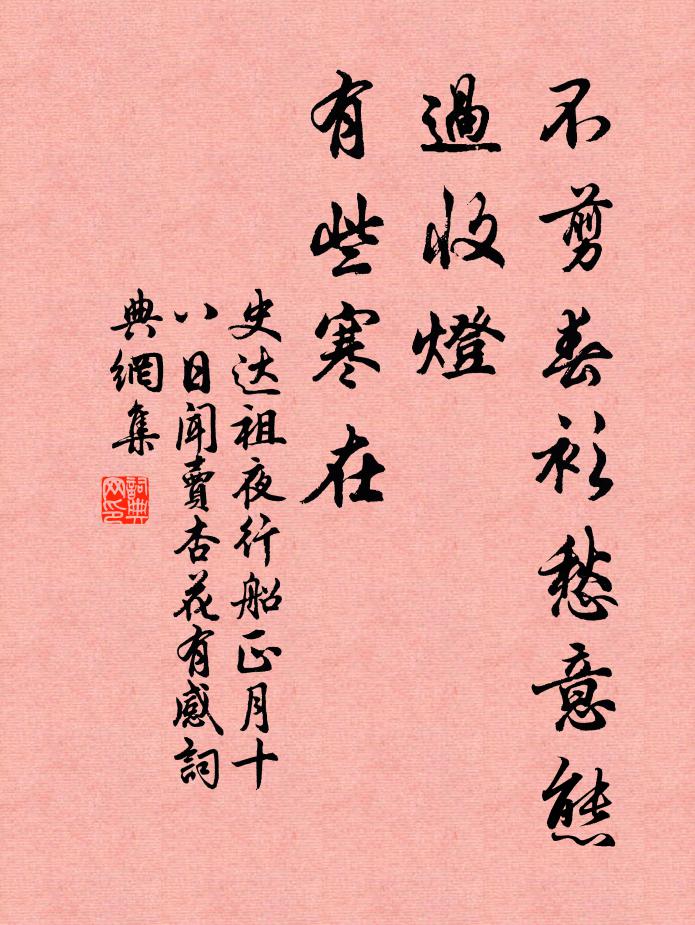 不剪春衫愁意態
過收燈
有些寒在
史达祖夜行船正月十
八日聞賣杏花有感詞
典網集
詞典網印